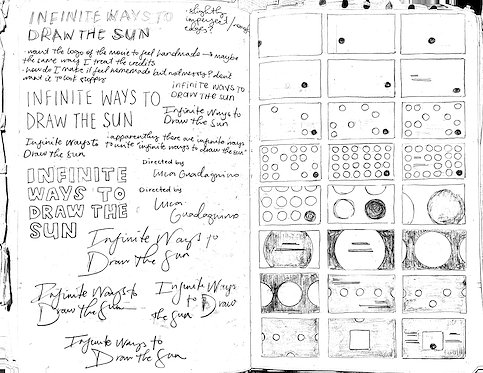 INFINITE WAYS TO
DRAW THE SUN
• slightly
imperfect / rough
edges?
• want the logo of the movie to feel handmade → maybe
the same way I treat the credits
• how do I make it feel homemade but not messy? don't
want it to look sloppy
INFINITE WAYS TO
DRAW THE SUN
INFINITE WAYS TO
DRAW THE SUN
Infinite Ways to
Draw The Sun
Infinite Ways to
Draw The Sun
• apparently there are infinite ways
to write "infinite ways to draw the sun"
INFINITE
WAYS TO
DRAW THE
SUN
Directed by
Luca Guadagnino
Directed by
Luca
Guadagnino
Infinite Ways to
Draw The Sun
Infinite Ways to
Draw The Sun
Infinite Ways
to Draw
the Sun
Infinite Ways to
Draw The Sun